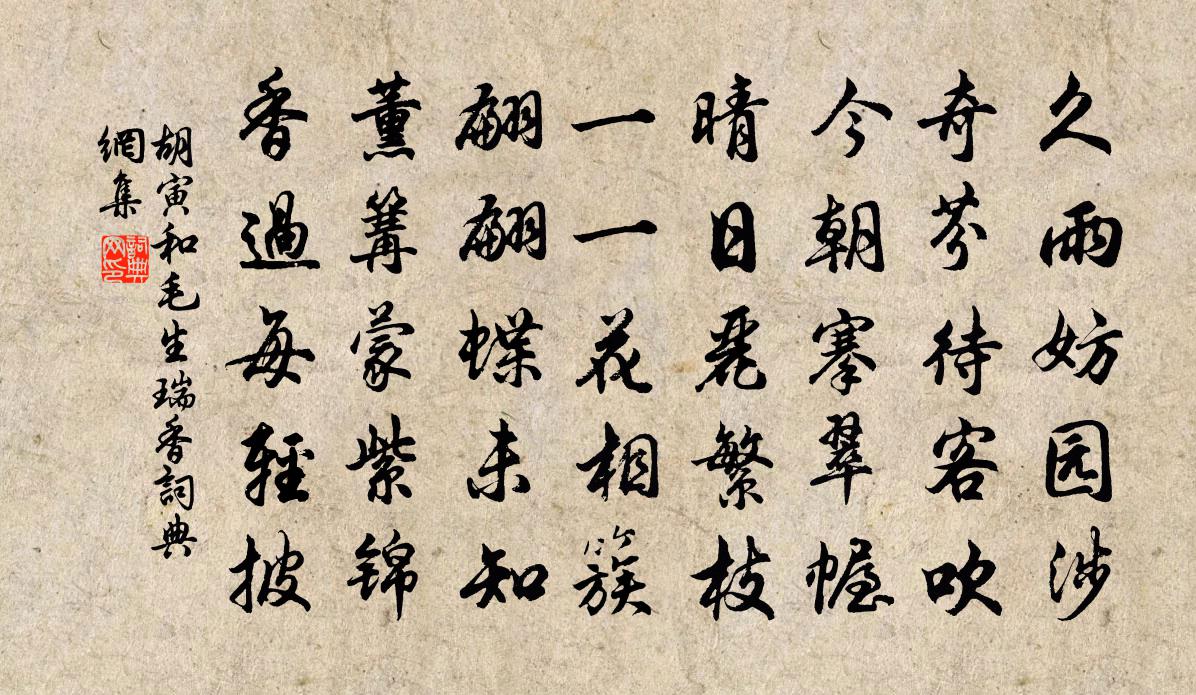 久雨妨园涉
奇芬待客吹
今朝搴翠幄
晴日麗繁枝
一一花相簇
翩翩蝶未知
薰篝蒙紫錦
香過每輕披
胡寅和毛生瑞香詞典
網集
詞典
网印